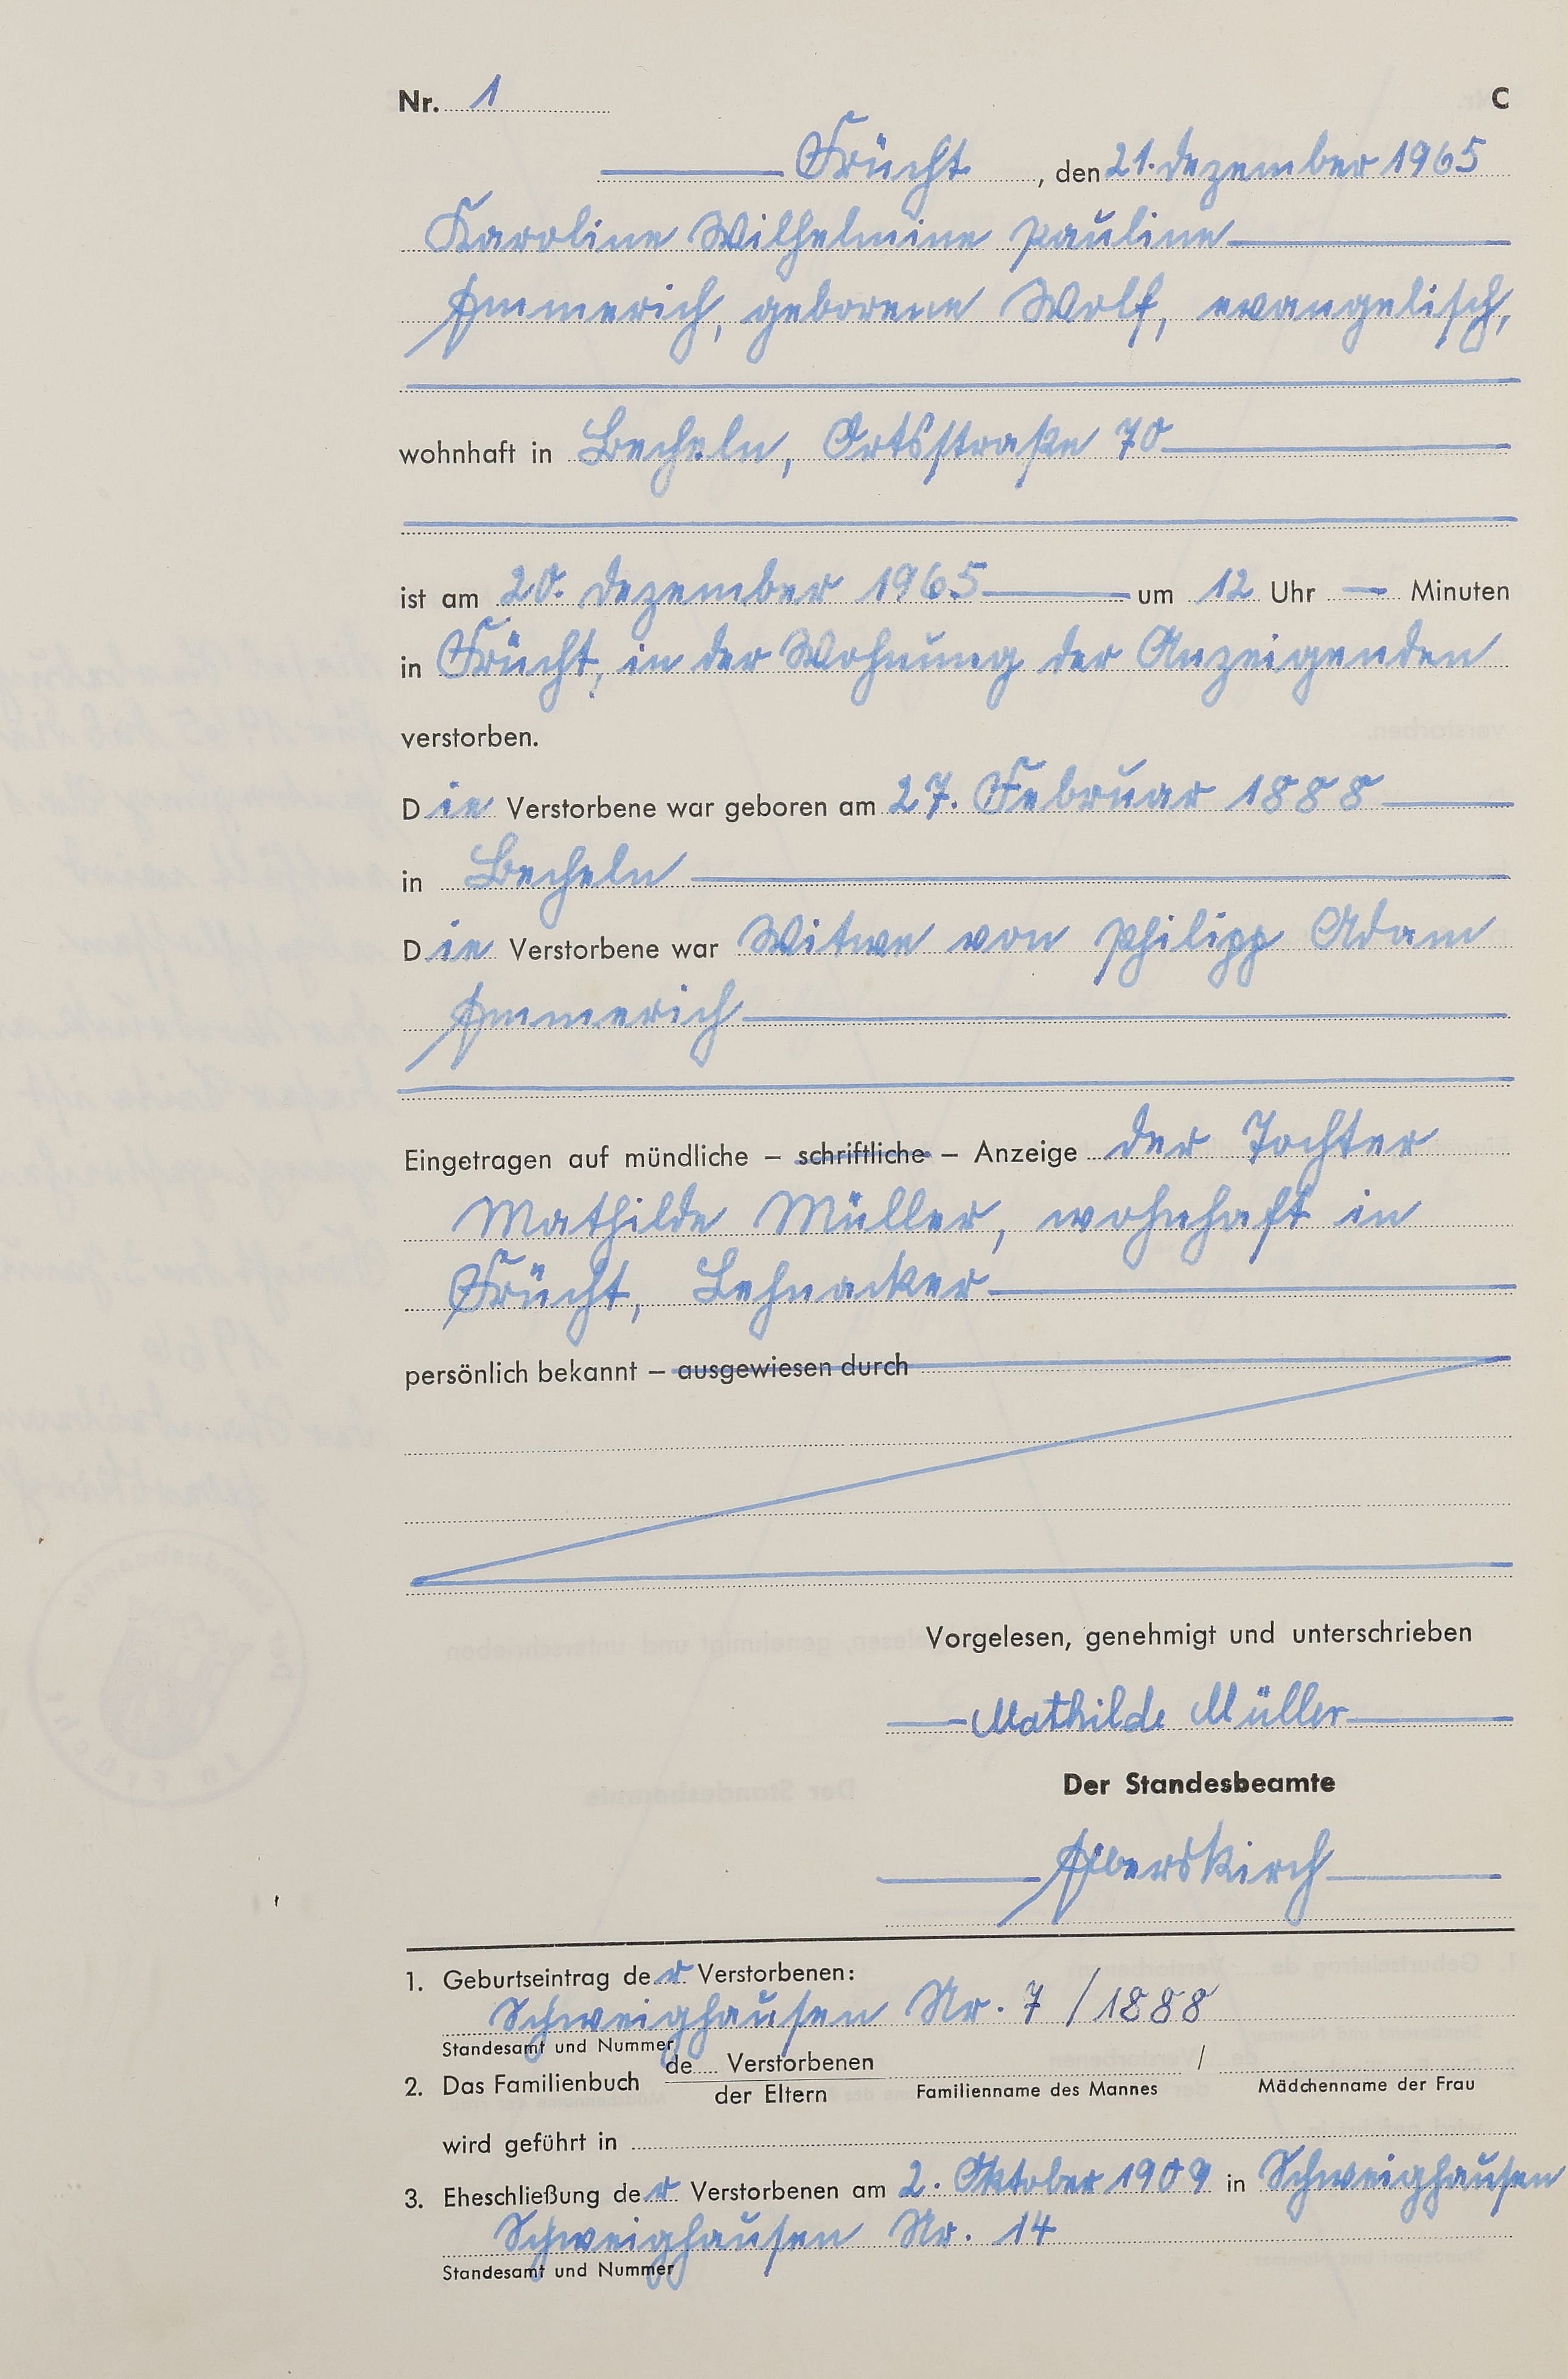 Nr. 1 C
Frücht, den 21. Dezember 1965
Karoline Wilhelmine Pauline
Emmerich, geborene Wolf, evangelisch,
wohnhaft in Becheln, Ortsstraße 70
ist am 20. Dezember 1965 um 12 Uhr — Minuten
in Frücht, in der Wohnung der Anzeigenden
verstorben.
Die Verstorbene war geboren am 27. Februar 1888
in Becheln
Die Verstorbene war Witwe von Philipp Adam
Emmerich
Eingetragen auf mündliche – schriftliche – Anzeige der Tochter
Mathilde Müller, wohnhaft in
Frücht, Lehnacker
persönlich bekannt – ausgewiesen durch
Vorgelesen, genehmigt und unterschrieben
Mathilde Müller
Der Standesbeamte
1. Geburtseintrag der Verstorbenen:
Schweighausen Nr. 7 / 1888
Standesamt und Nummer
2. Das Familienbuch de.... Verstorbenen /
der Eltern Familienname des Mannes Mädchenname der Frau
wird geführt in
3. Eheschließung der Verstorbenen am 2. Oktober 1909 in Schweighausen
Schweighausen Nr. 14
Standesamt und Nummer